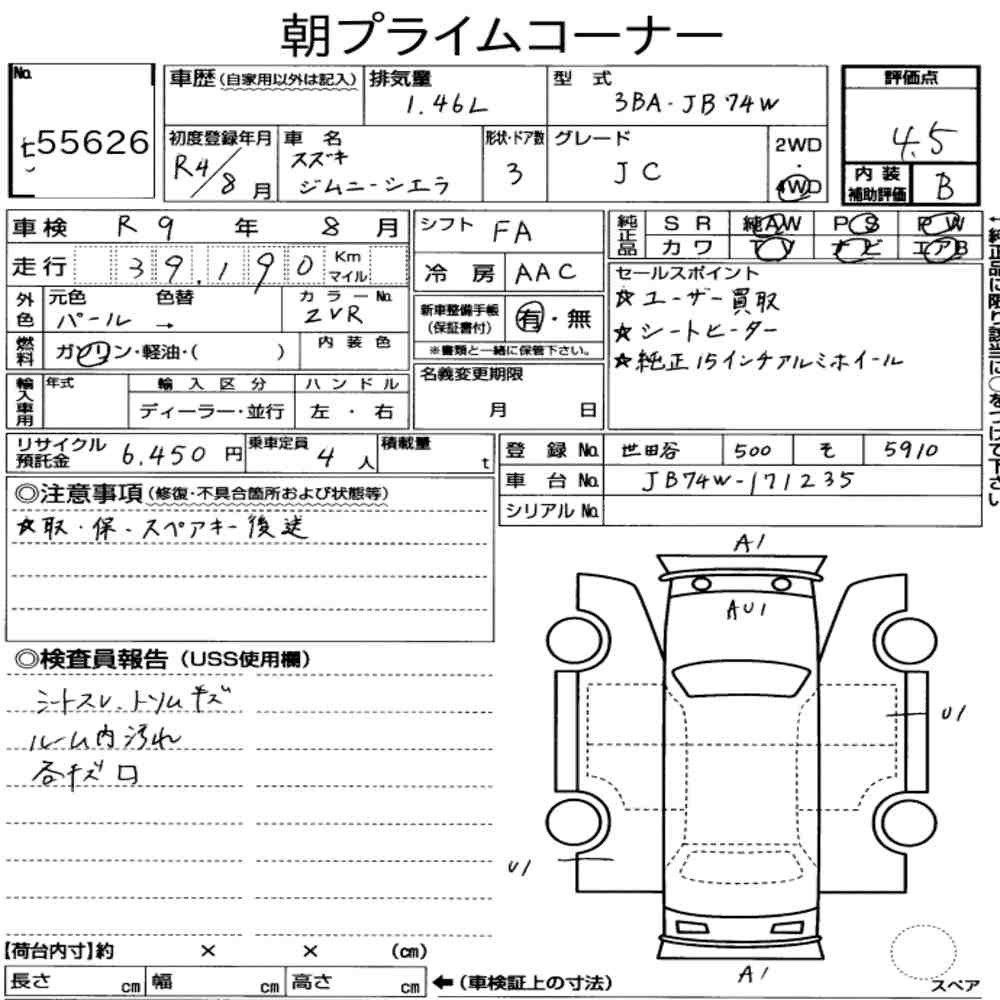 朝プライムコーナー
No.
セ55626
車歴(自家用以外は記入)
排気量
1.46L
型 式
3BA-JB74W
評価点
4.5
内装補助評価
B
初度登録年月
R4/8月
車 名
スズキ
ジムニーシエラ
形状・ドア数
3
グレード
JC
2WD
・
4WD
車検 R9年 8月
走行 39,190 Km マイル
外色 元色 色替
パール →
カラーNo.
ZVR
燃料 ガソリン・軽油・( )
内装色
輸入車用 年式
輸入区分
ディーラー・並行
ハンドル
左・右
シフト FA
冷房 AAC
新車整備手帳
(保証書付)
有・無
※書類と一緒に保管下さい。
名義変更期限
月 日
純正品 SR 純AW PS PW
カワ TV ナビ エアB
セールスポイント
☆ユーザー買取
☆シートヒーター
☆純正15インチアルミホイール
←純正品に限り該当に○をつけて下さい
リサイクル預託金 6.450円
乗車定員 4人
積載量 t
登録No. 世田谷 500 そ 5910
車台No. JB74W-171235
シリアルNo.
◎注意事項(修復・不具合箇所および状態等)
☆取・保・スペアキー後送
◎検査員報告(USS使用欄)
シートスレ、トリムキズ
ルーム内汚れ
各キズ口
A1
AU1
U1
U1
A1
スペア
【荷台内寸】約 × × (cm)
長さ cm 幅 cm 高さ cm ←(車検証上の寸法)